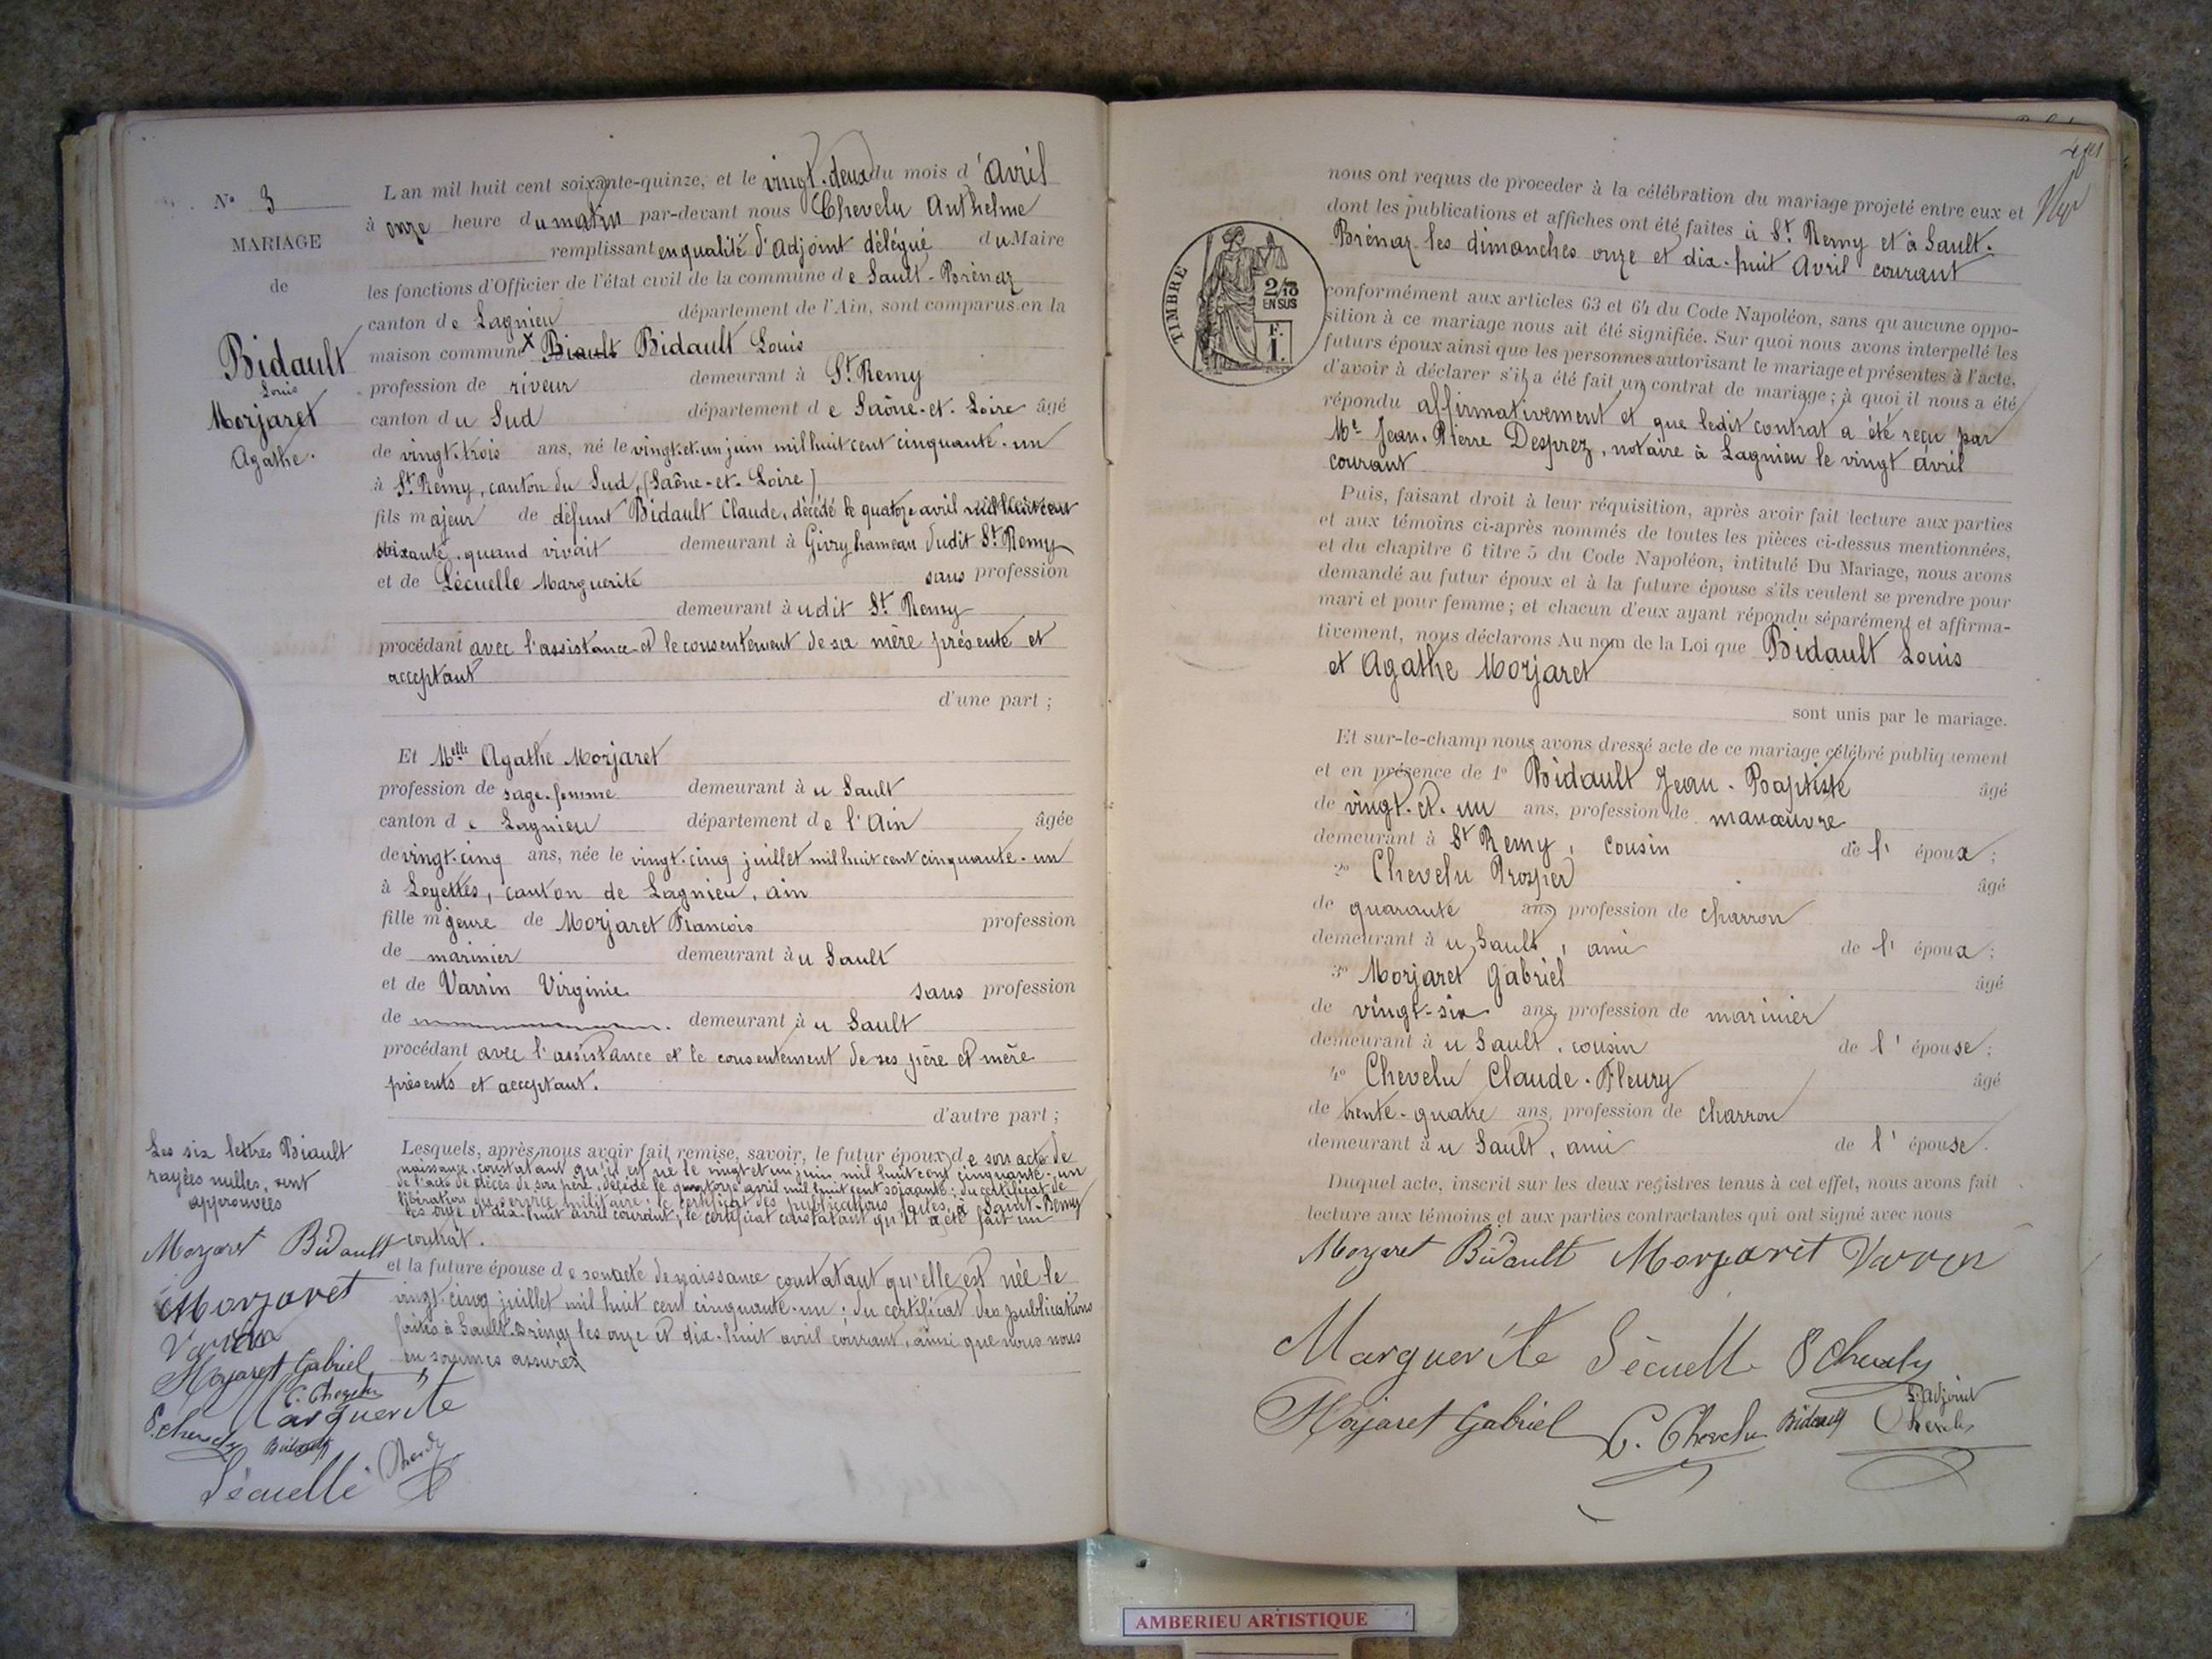 N° 3
MARIAGE
de
Bidault
Louis
Morjaret
Agathe.
L'an mil huit cent soixante-quinze, et le vingt-deux du mois d'Avril
à onze heure du matin par-devant nous Chevelu Anthelme
remplissant en qualité d'Adjoint délégué du Maire
les fonctions d'Officier de l'état civil de la commune de Sault-Brénaz
canton de Lagnieu département de l'Ain, sont comparus en la
maison commune X Biault Bidault Louis
profession de riveur demeurant à St. Remy
canton du Sud département de Saône-et-Loire âgé
de vingt-trois ans, né le vingt-et-un juin mil huit cent cinquante-un
à St. Remy, canton du Sud, (Saône-et-Loire)
fils majeur de défunt Bidault Claude, décédé le quatorze avril mil huit cent
soixante, quand vivait demeurant à Givry hameau dudit St. Remy
et de Lécuelle Marguerite sans profession
demeurant audit St. Remy
procédant avec l'assistance et le consentement de sa mère présente et
acceptant
d'une part ;
Et Melle Agathe Morjaret
profession de sage-femme demeurant au Sault
canton de Lagnieu département de l'Ain âgée
de vingt-cinq ans, née le vingt-cinq juillet mil huit cent cinquante-un
à Loyettes, canton de Lagnieu, Ain
fille mgeure de Morjaret François profession
de marinier demeurant au Sault
et de Varrin Virginie sans profession
de demeurant au Sault
procédant avec l'assistance et le consentement de ses père et mère
présents et acceptant.
d'autre part ;
Lesquels, après nous avoir fait remise, savoir, le futur époux de son acte de
naissance, constatant qu'il est né le vingt et un juin mil huit cent cinquante-un
de l'acte de décès de son père, décédé le quatorze avril mil huit cent soixante ; du certificat de
libération du service militaire ; le certificat des publications faites, à Saint-Remy
les onze et dix-huit avril courant ; le certificat constatant qu'il a été fait un
contrat.
et la future épouse de son acte de naissance constatant qu'elle est née le
vingt-cinq juillet mil huit cent cinquante-un ; du certificat des publications
faites à Sault-Brénaz les onze et dix-huit avril courant, ainsi que nous nous
en sommes assurés
Les six lettres Biault
rayées nulles, sont
approuvées
Morjaret Bidault
Morjaret
Varrin
Morjaret Gabriel
C. Chevelu
P. Chevelu Marguerite
Bidault
Lécuelle Chevelu
nous ont requis de proceder à la célébration du mariage projeté entre eux et
dont les publications et affiches ont été faites à St. Remy et à Sault-
Brénaz les dimanches onze et dix-huit Avril courant
TIMBRE
2/10
EN SUS
F.
1.
conformément aux articles 63 et 64 du Code Napoléon, sans qu aucune oppo-
sition à ce mariage nous ait été signifiée. Sur quoi nous avons interpellé les
futurs époux ainsi que les personnes autorisant le mariage et présentes à l'acte,
d'avoir à déclarer s'il a été fait un contrat de mariage ; à quoi il nous a été
répondu affirmativement et que ledit contrat a été reçu par
Me Jean-Pierre Desprez, notaire à Lagnieu le vingt avril
courant
Puis, faisant droit à leur réquisition, après avoir fait lecture aux parties
et aux témoins ci-après nommés de toutes les pièces ci-dessus mentionnées,
et du chapitre 6 titre 5 du Code Napoléon, intitulé Du Mariage, nous avons
demandé au futur époux et à la future épouse s'ils veulent se prendre pour
mari et pour femme ; et chacun d'eux ayant répondu séparément et affirma-
tivement, nous déclarons Au nom de la Loi que Bidault Louis
et Agathe Morjaret
sont unis par le mariage.
Et sur-le-champ nous avons dressé acte de ce mariage célébré publiquement
et en présence de 1° Bidault Jean-Baptiste âgé
de vingt-et-un ans, profession de manœuvre
demeurant à St Remy, cousin de l'époux ;
2° Chevelu Prosper âgé
de quarante ans, profession de charron
demeurant au Sault, ami de l'époux ;
3° Morjaret Gabriel âgé
de vingt-six ans, profession de marinier
demeurant au Sault, cousin de l'épouse ;
4° Chevelu Claude-Fleury âgé
de trente-quatre ans, profession de charron
demeurant au Sault, ami de l'épouse.
Duquel acte, inscrit sur les deux registres tenus à cet effet, nous avons fait
lecture aux témoins et aux parties contractantes qui ont signé avec nous
Morjaret Bidault Morjaret Varrin
Marguerite Lécuelle P Chevelu
Morjaret Gabriel C. Chevelu Bidault L'adjoint
Chevelu
AMBERIEU ARTISTIQUE